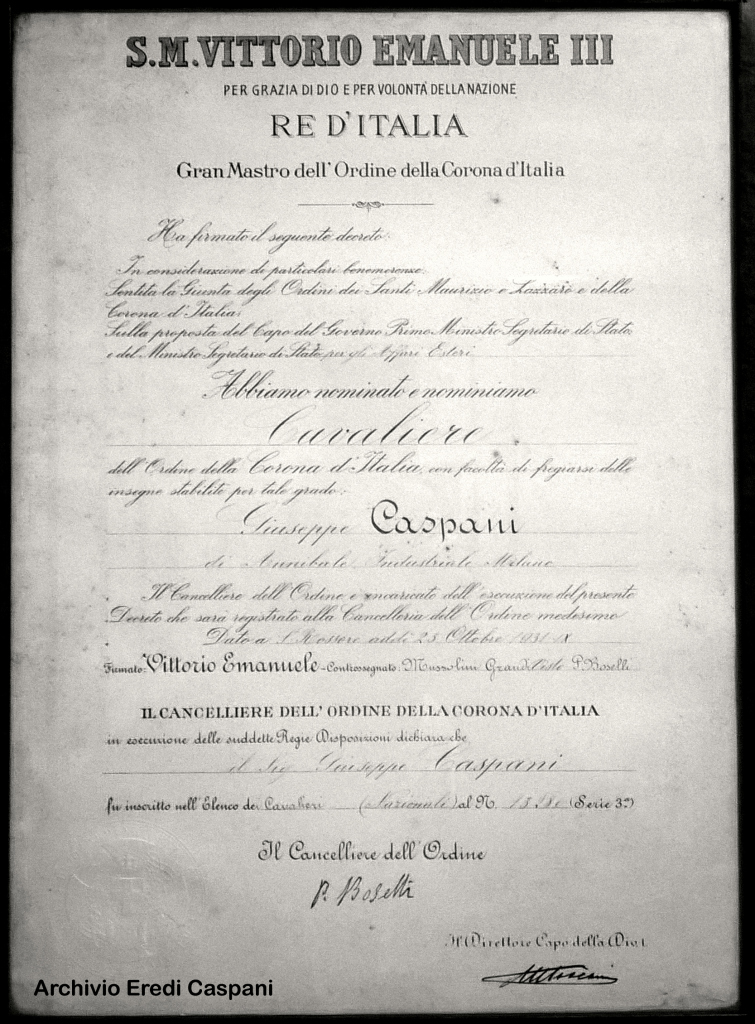 S.M. VITTORIO EMANUELE III
PER GRAZIA DI DIO E PER VOLONTÀ DELLA NAZIONE
RE D'ITALIA
Gran Mastro dell'Ordine della Corona d'Italia
Ha firmato il seguente decreto:
In considerazione di particolari benemerenze;
Sentita la Giunta degli Ordini dei Santi Maurizio e Lazzaro e della
Corona d'Italia;
Sulla proposta del Capo del Governo Primo Ministro Segretario di Stato,
e del Ministro Segretario di Stato per gli Affari Esteri
Abbiamo nominato e nominiamo
Cavaliere
dell'Ordine della Corona d'Italia, con facoltà di fregiarsi delle
insegne stabilite per tale grado:
Giuseppe Caspani
di Annibale Industriale Milano
Il Cancelliere dell'Ordine è incaricato dell'esecuzione del presente
Decreto che sarà registrato alla Cancelleria dell'Ordine medesimo
Dato a S. Rossore addì 25 Ottobre 1931 IX
Firmato: Vittorio Emanuele - Controssegnato: Mussolini Grandi Visto P. Boselli
IL CANCELLIERE DELL'ORDINE DELLA CORONA D'ITALIA
in esecuzione delle suddette Regie Disposizioni dichiara che
il Sig Giuseppe Caspani
fu inscritto nell'Elenco dei Cavalieri (Nazionali) al N. (Serie 3ª)
Il Cancelliere dell'Ordine
P. Boselli
Il Direttore Capo della Div. I
Archivio Eredi Caspani